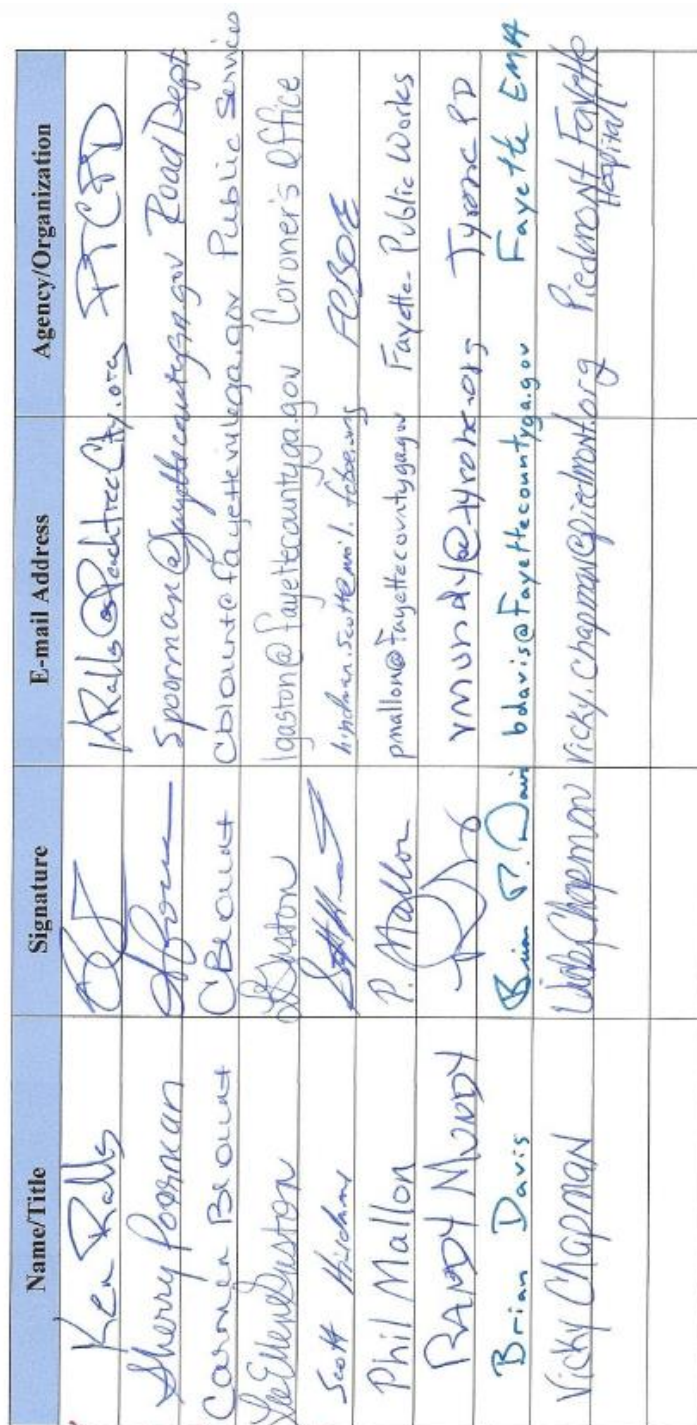 Name/Title Signature E-mail Address Agency/Organization
Ken Ralls KRalls@PeachtreeCity.org PTCPD
Sherry Poorman Spoorman@fayettecountyga.gov Road Dept
Carmen Blount CBlount Cblount@fayetteville-ga.gov Public Services
LeeEllenGaston LGaston lgaston@fayettecountyga.gov Coroner's Office
Scott Hindman hindman.scott@mail.fcboe.org FCBOE
Phil Mallon P. Mallon pmallon@fayettecountyga.gov Fayette Public Works
RANDY MUNDY rmundy@tyrone.org Tyrone PD
Brian Davis Brian P. Davis bdavis@fayettecountyga.gov Fayette EMA
Vicky Chapman Vicky Chapman Vicky.Chapman@piedmont.org Piedmont Fayette
Hospital